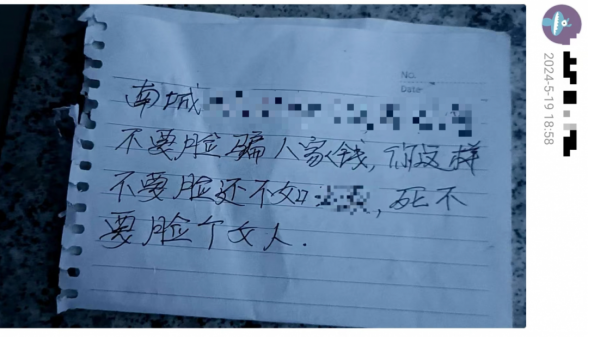 No.
Date
南城
不要脸骗人家钱,你这样
不要脸还不如,死不
要脸个女人.
2024-5-19 18:58